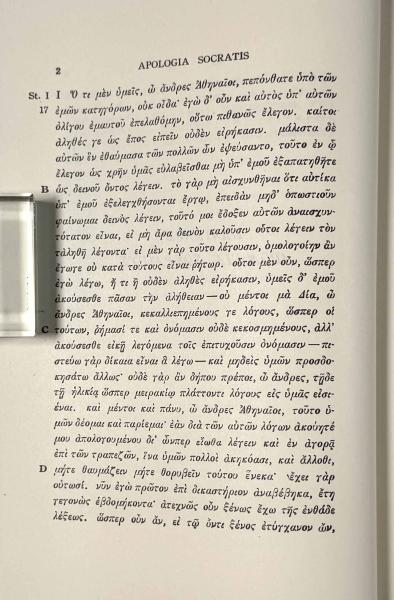 2 APOLOGIA SOCRATIS
St. I I Ὅ τι μὲν ὑμεῖς, ὦ ἄνδρες Ἀθηναῖοι, πεπόνθατε ὑπὸ τῶν
17 ἐμῶν κατηγόρων, οὐκ οἶδα· ἐγὼ δ' οὖν καὶ αὐτὸς ὑπ' αὐτῶν
ὀλίγου ἐμαυτοῦ ἐπελαθόμην, οὕτω πιθανῶς ἔλεγον. καίτοι
ἀληθές γε ὡς ἔπος εἰπεῖν οὐδὲν εἰρήκασιν. μάλιστα δὲ
αὐτῶν ἓν ἐθαύμασα τῶν πολλῶν ὧν ἐψεύσαντο, τοῦτο ἐν ᾧ
ἔλεγον ὡς χρῆν ὑμᾶς εὐλαβεῖσθαι μὴ ὑπ' ἐμοῦ ἐξαπατηθῆτε
B ὡς δεινοῦ ὄντος λέγειν. τὸ γὰρ μὴ αἰσχυνθῆναι ὅτι αὐτίκα
ὑπ' ἐμοῦ ἐξελεγχθήσονται ἔργῳ, ἐπειδὰν μηδ' ὁπωστιοῦν
φαίνωμαι δεινὸς λέγειν, τοῦτό μοι ἔδοξεν αὐτῶν ἀναισχυν-
τότατον εἶναι, εἰ μὴ ἄρα δεινὸν καλοῦσιν οὗτοι λέγειν τὸν
τἀληθῆ λέγοντα· εἰ μὲν γὰρ τοῦτο λέγουσιν, ὁμολογοίην ἂν
ἔγωγε οὐ κατὰ τούτους εἶναι ῥήτωρ. οὗτοι μὲν οὖν, ὥσπερ
ἐγὼ λέγω, ἤ τι ἢ οὐδὲν ἀληθὲς εἰρήκασιν, ὑμεῖς δ' ἐμοῦ
ἀκούσεσθε πᾶσαν τὴν ἀλήθειαν — οὐ μέντοι μὰ Δία, ὦ
ἄνδρες Ἀθηναῖοι, κεκαλλιεπημένους γε λόγους, ὥσπερ οἱ
C τούτων, ῥήμασί τε καὶ ὀνόμασιν οὐδὲ κεκοσμημένους, ἀλλ'
ἀκούσεσθε εἰκῇ λεγόμενα τοῖς ἐπιτυχοῦσιν ὀνόμασιν — πι-
στεύω γὰρ δίκαια εἶναι ἃ λέγω — καὶ μηδεὶς ὑμῶν προσδο-
κησάτω ἄλλως· οὐδὲ γὰρ ἂν δήπου πρέποι, ὦ ἄνδρες, τῇδε
τῇ ἡλικίᾳ ὥσπερ μειρακίῳ πλάττοντι λόγους εἰς ὑμᾶς εἰσι-
έναι. καὶ μέντοι καὶ πάνυ, ὦ ἄνδρες Ἀθηναῖοι, τοῦτο ὑ-
μῶν δέομαι καὶ παρίεμαι· ἐὰν διὰ τῶν αὐτῶν λόγων ἀκούητέ
μου ἀπολογουμένου δι' ὧνπερ εἴωθα λέγειν καὶ ἐν ἀγορᾷ
ἐπὶ τῶν τραπεζῶν, ἵνα ὑμῶν πολλοὶ ἀκηκόασι, καὶ ἄλλοθι,
D μήτε θαυμάζειν μήτε θορυβεῖν τούτου ἕνεκα· ἔχει γὰρ
οὑτωσί. νῦν ἐγὼ πρῶτον ἐπὶ δικαστήριον ἀναβέβηκα, ἔτη
γεγονὼς ἑβδομήκοντα· ἀτεχνῶς οὖν ξένως ἔχω τῆς ἐνθάδε
λέξεως. ὥσπερ οὖν ἄν, εἰ τῷ ὄντι ξένος ἐτύγχανον ὤν,